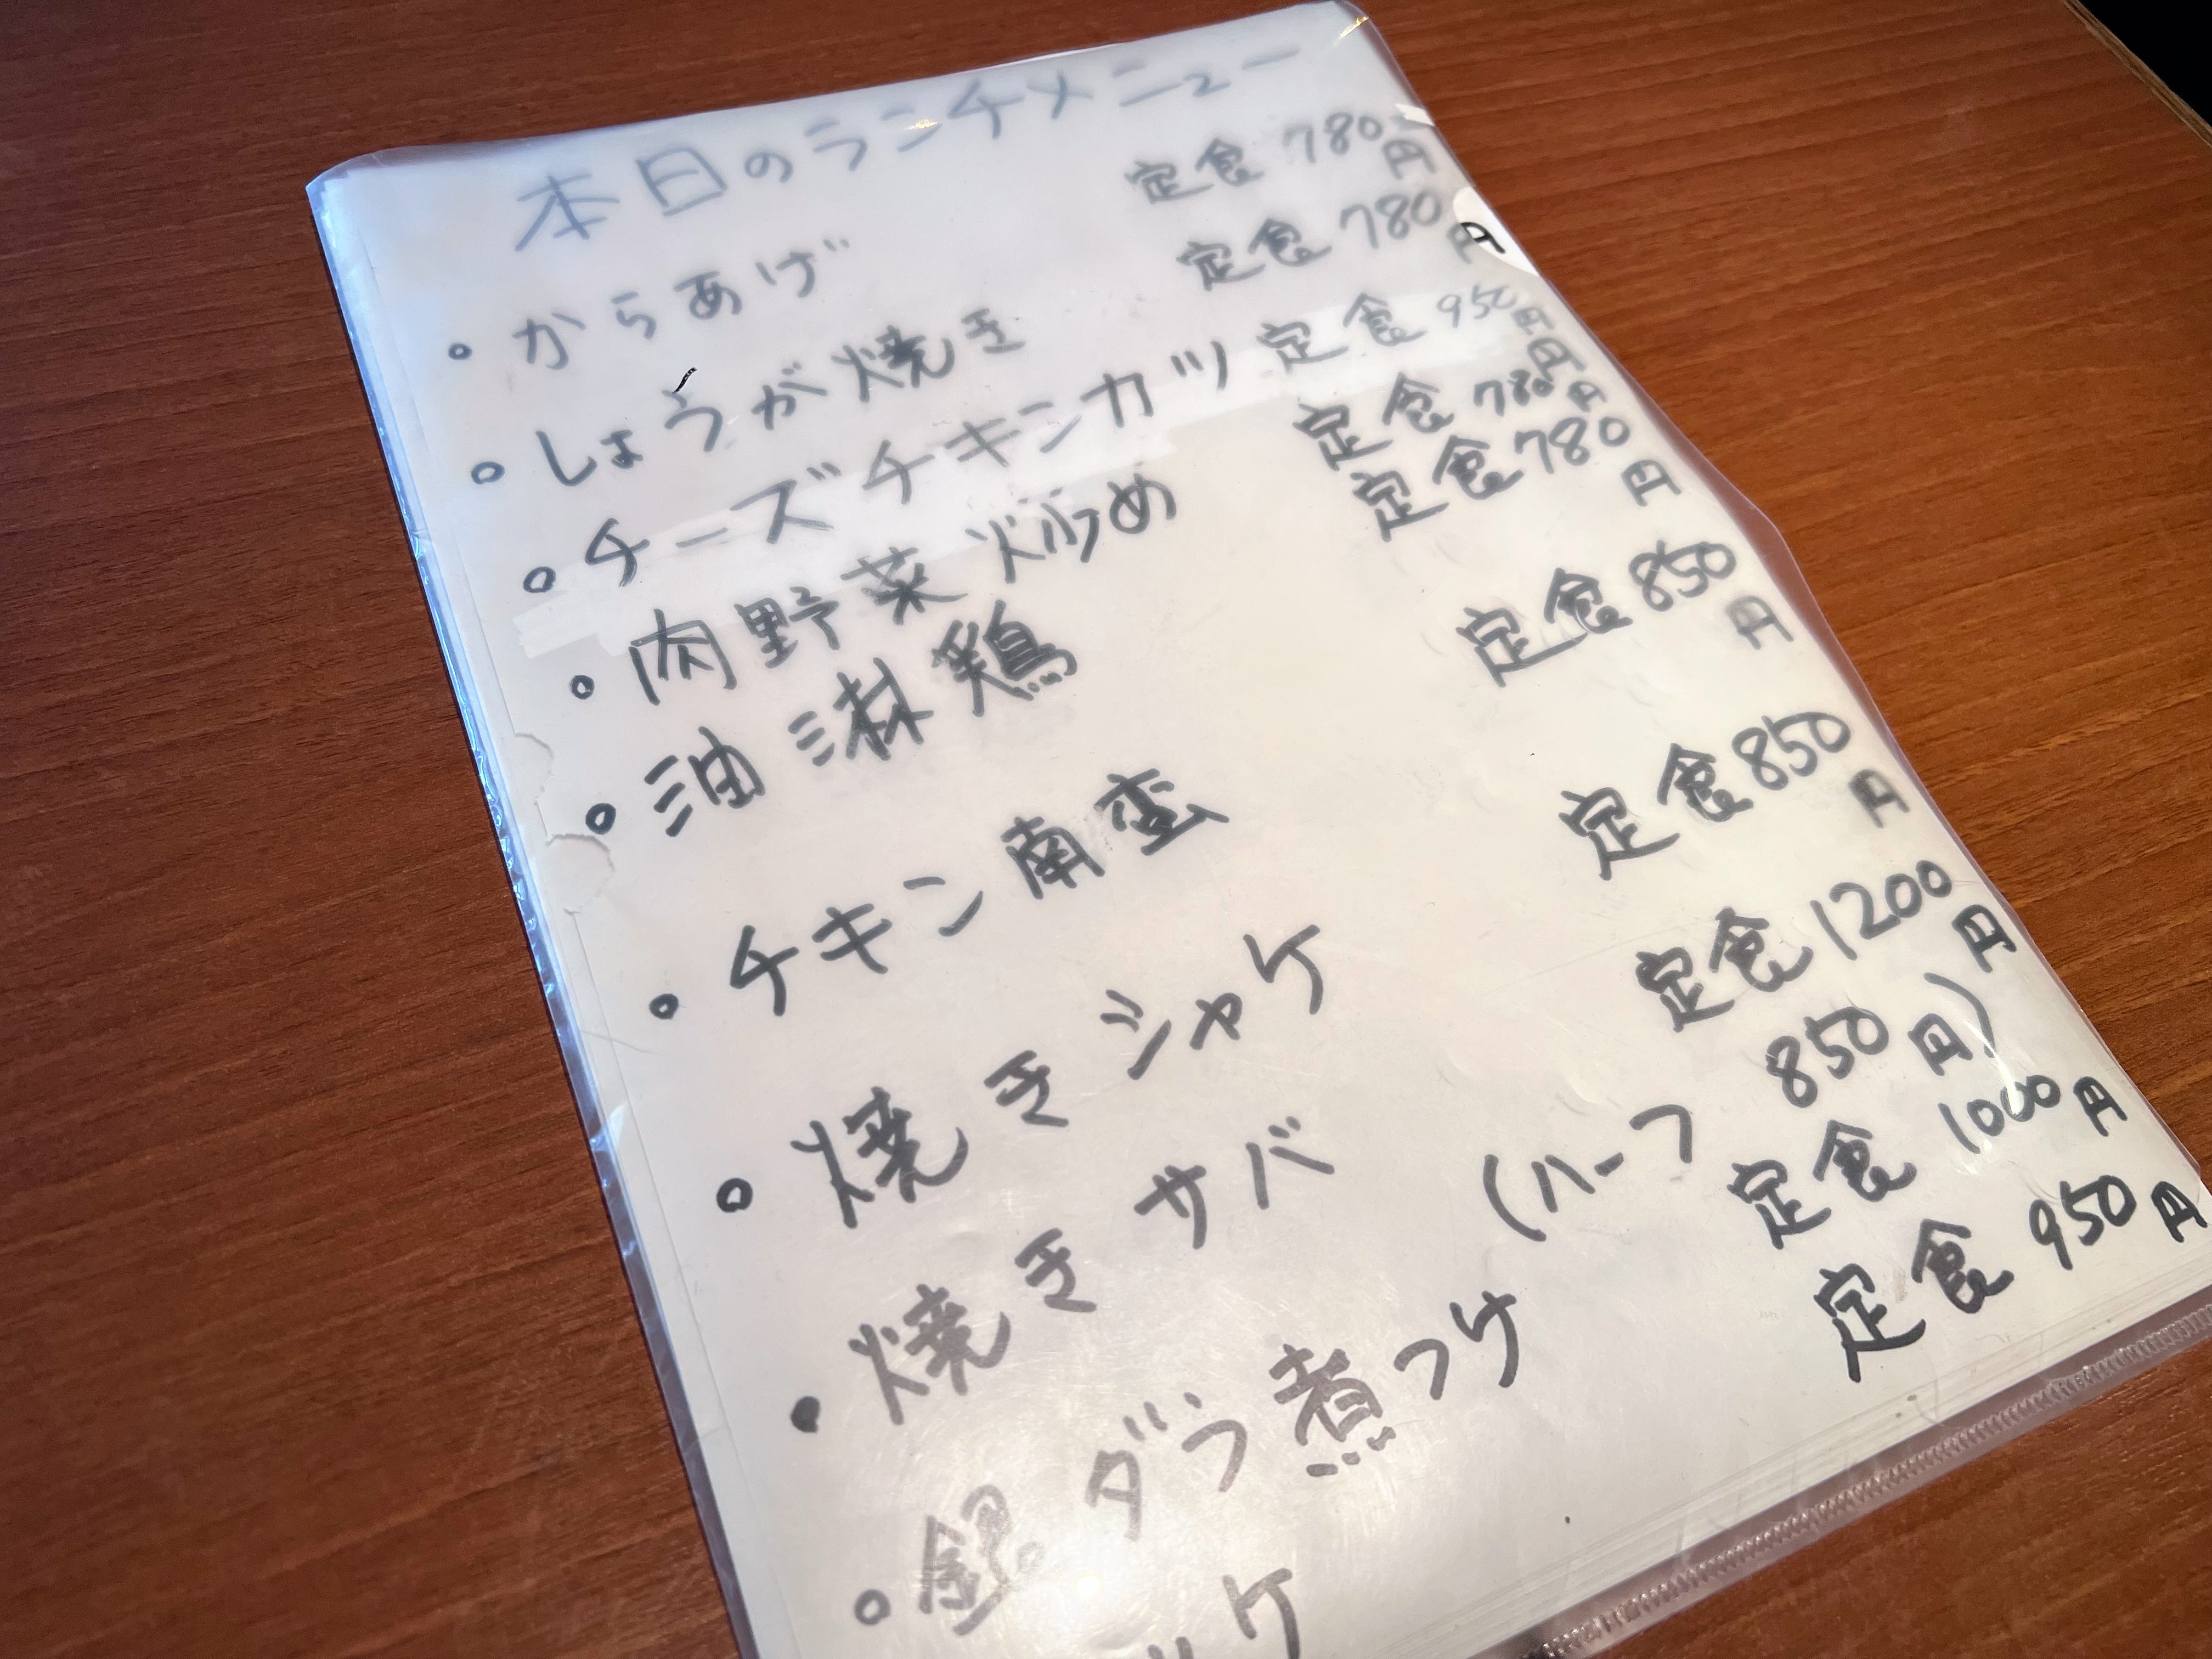 本日のランチメニュー
。からあげ 定食 780円
。しょうが焼き 定食 780円
。チーズチキンカツ 定食 950円
。肉野菜炒め 定食 780円
。油淋鶏 定食 780円
。チキン南蛮 定食 850円
。焼きシャケ 定食 850円
・焼きサバ 定食 1200円
(ハーフ 850円)
。銀ダラ煮つけ 定食 1000円
定食 950円